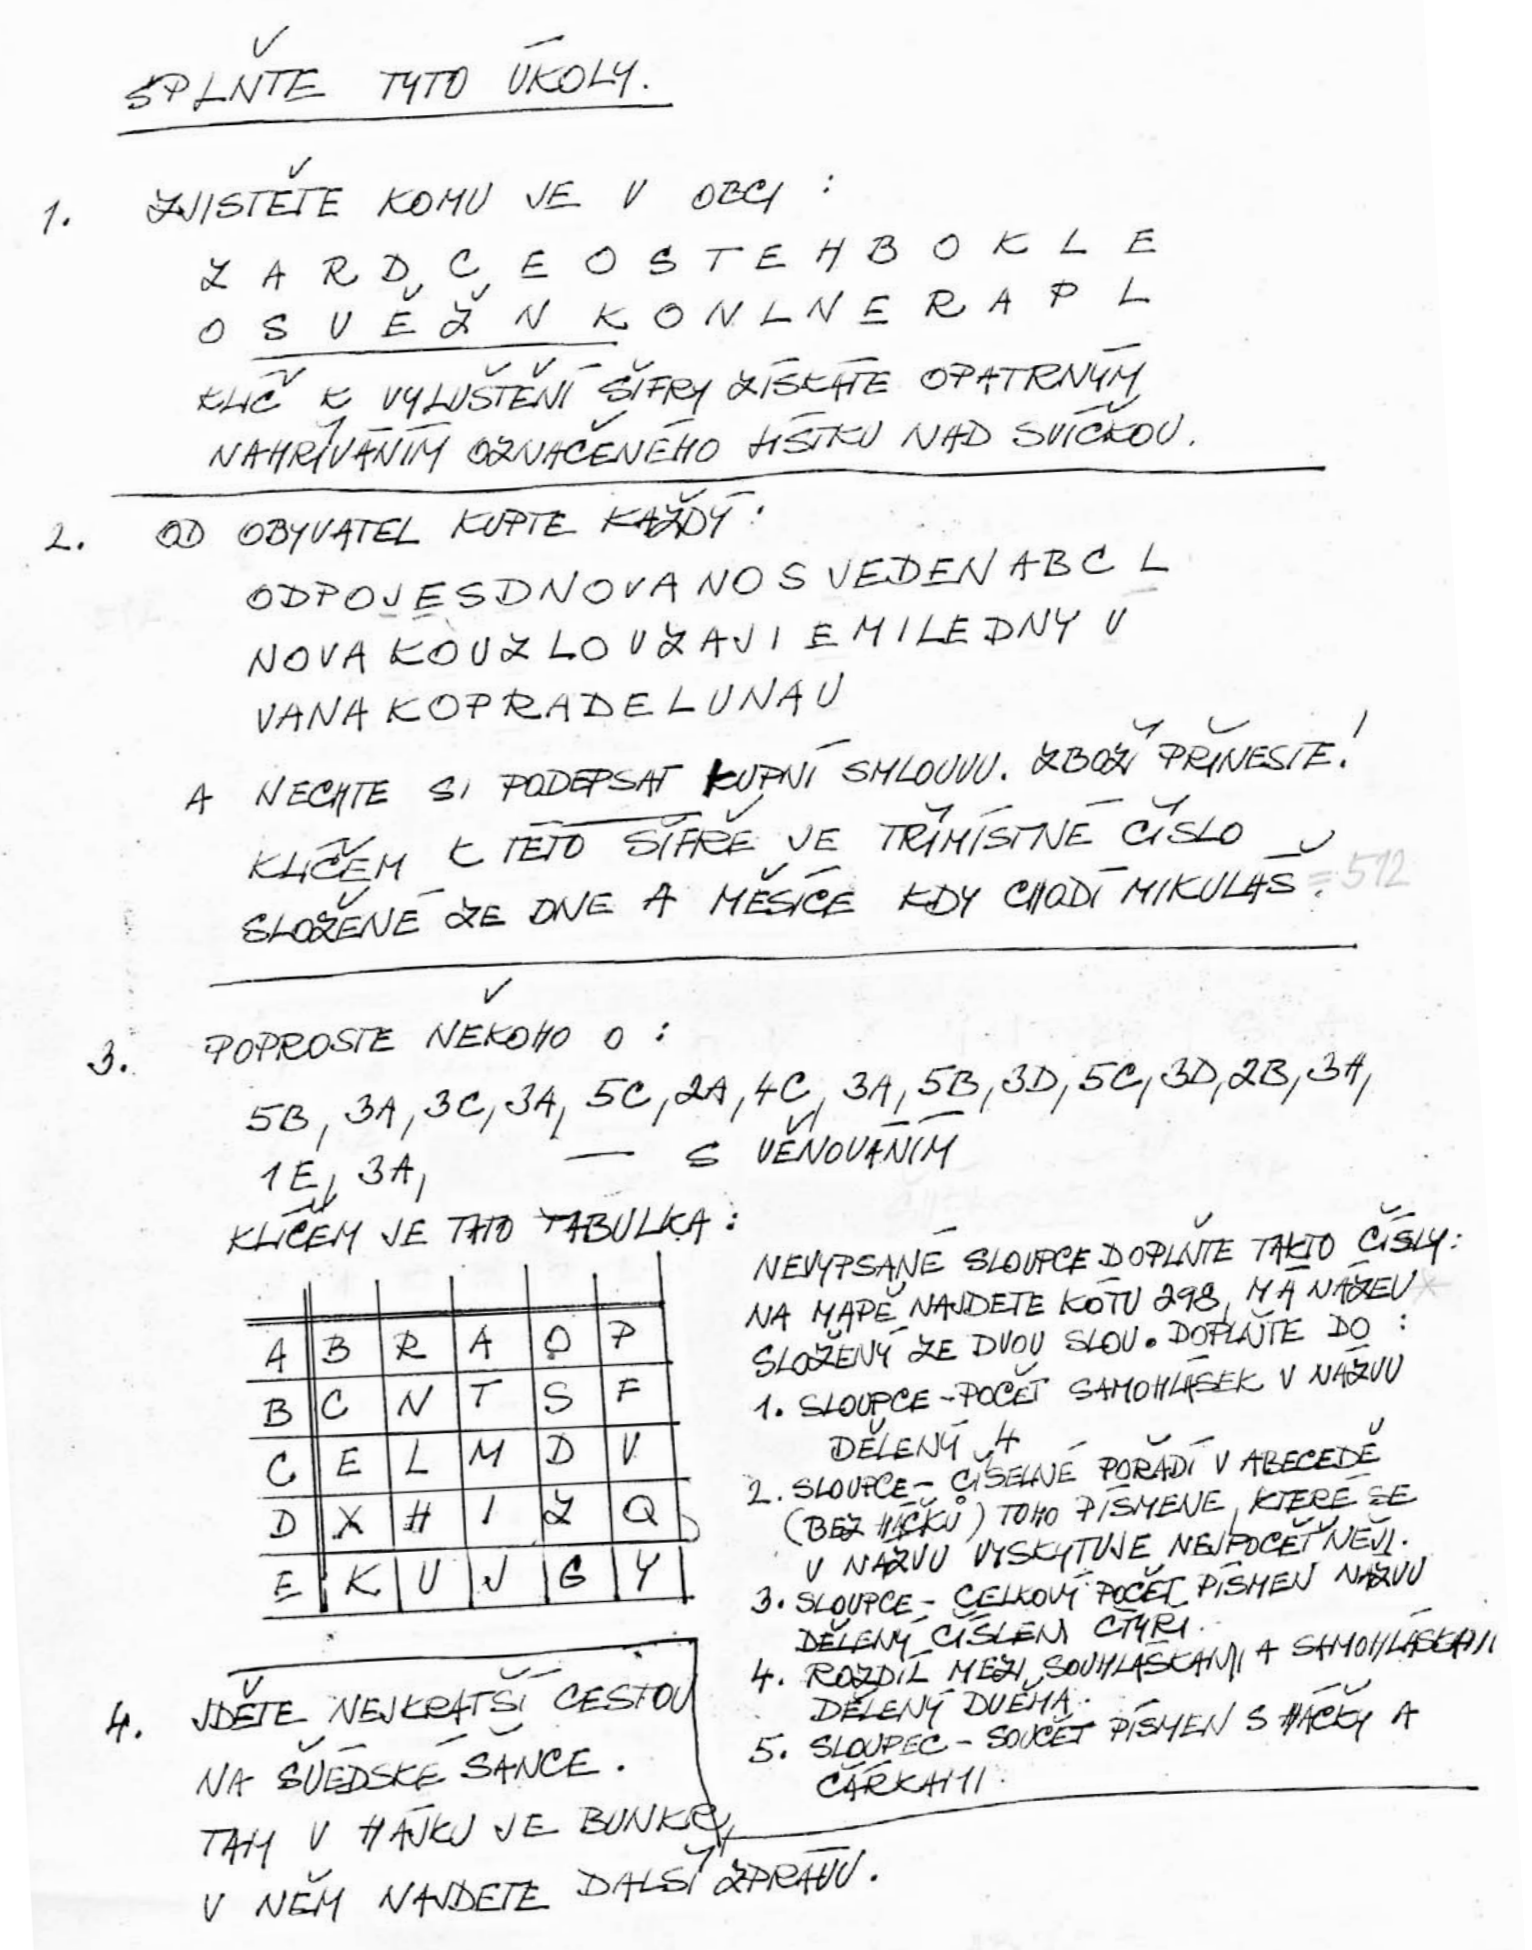 SPLŇTE TYTO ÚKOLY.
1. ZJISTĚTE KOMU JE V OBCI :
Z A R D C E O S T E H B O K L E
O S V Ě Ž N K O N L N E R A P L
KLÍČ K VYLUŠTĚNÍ ŠIFRY ZÍSKÁTE OPATRNÝM
NAHŘÍVÁNÍM OZNAČENÉHO LÍSTKU NAD SVÍČKOU.
2. OD OBYVATEL KUPTE KAŽDÝ :
ODPOJESDNOVANOSJEDENABCL
NOVAKOUZLOUZAJIEMILEDNYV
VANAKOPRADELUNAU
A NECHTE SI PODEPSAT KUPNÍ SMLOUVU. ZBOŽÍ PŘINESTE!
KLÍČEM K TÉTO ŠIFŘE JE TŘÍMÍSTNÉ ČÍSLO
SLOŽENÉ ZE DNE A MĚSÍCE KDY CHODÍ MIKULÁŠ. =512
3. POPROSTE NĚKOHO O :
5B, 3A, 3C, 3A, 5C, 2A, 4C, 3A, 5B, 3D, 5C, 3D, 2B, 3A,
1E, 3A, — S VĚNOVÁNÍM
KLÍČEM JE TATO TABULKA :
A B R A O P
B C N T S F
C E L M D V
D X H I Z Q
E K U J G Y
NEVYPSANÉ SLOUPCE DOPLŇTE TAKTO ČÍSLY:
NA MAPĚ NAJDETE KÓTU 298, MÁ NÁZEV
SLOŽENÝ ZE DVOU SLOV. DOPLŇTE DO :
1. SLOUPCE - POČET SAMOHLÁSEK V NÁZVU
DĚLENÝ 4
2. SLOUPCE - ČÍSELNÉ POŘADÍ V ABECEDĚ
(BEZ HÁČKŮ) TOHO PÍSMENE, KTERÉ SE
V NÁZVU VYSKYTUJE NEJPOČETNĚJI.
3. SLOUPCE - CELKOVÝ POČET PÍSMEN NÁZVU
DĚLENÝ ČÍSLEM ČTYŘI.
4. ROZDÍL MEZI SOUHLÁSKAMI A SAMOHLÁSKAMI
DĚLENÝ DVĚMA.
5. SLOUPEC - SOUČET PÍSMEN S HÁČKY A
ČÁRKAMI.
4. JDĚTE NEJKRATŠÍ CESTOU
NA ŠVÉDSKÉ ŠANCE.
TAM V HÁJKU JE BUNKR,
V NĚM NAJDETE DALŠÍ ZPRÁVU.